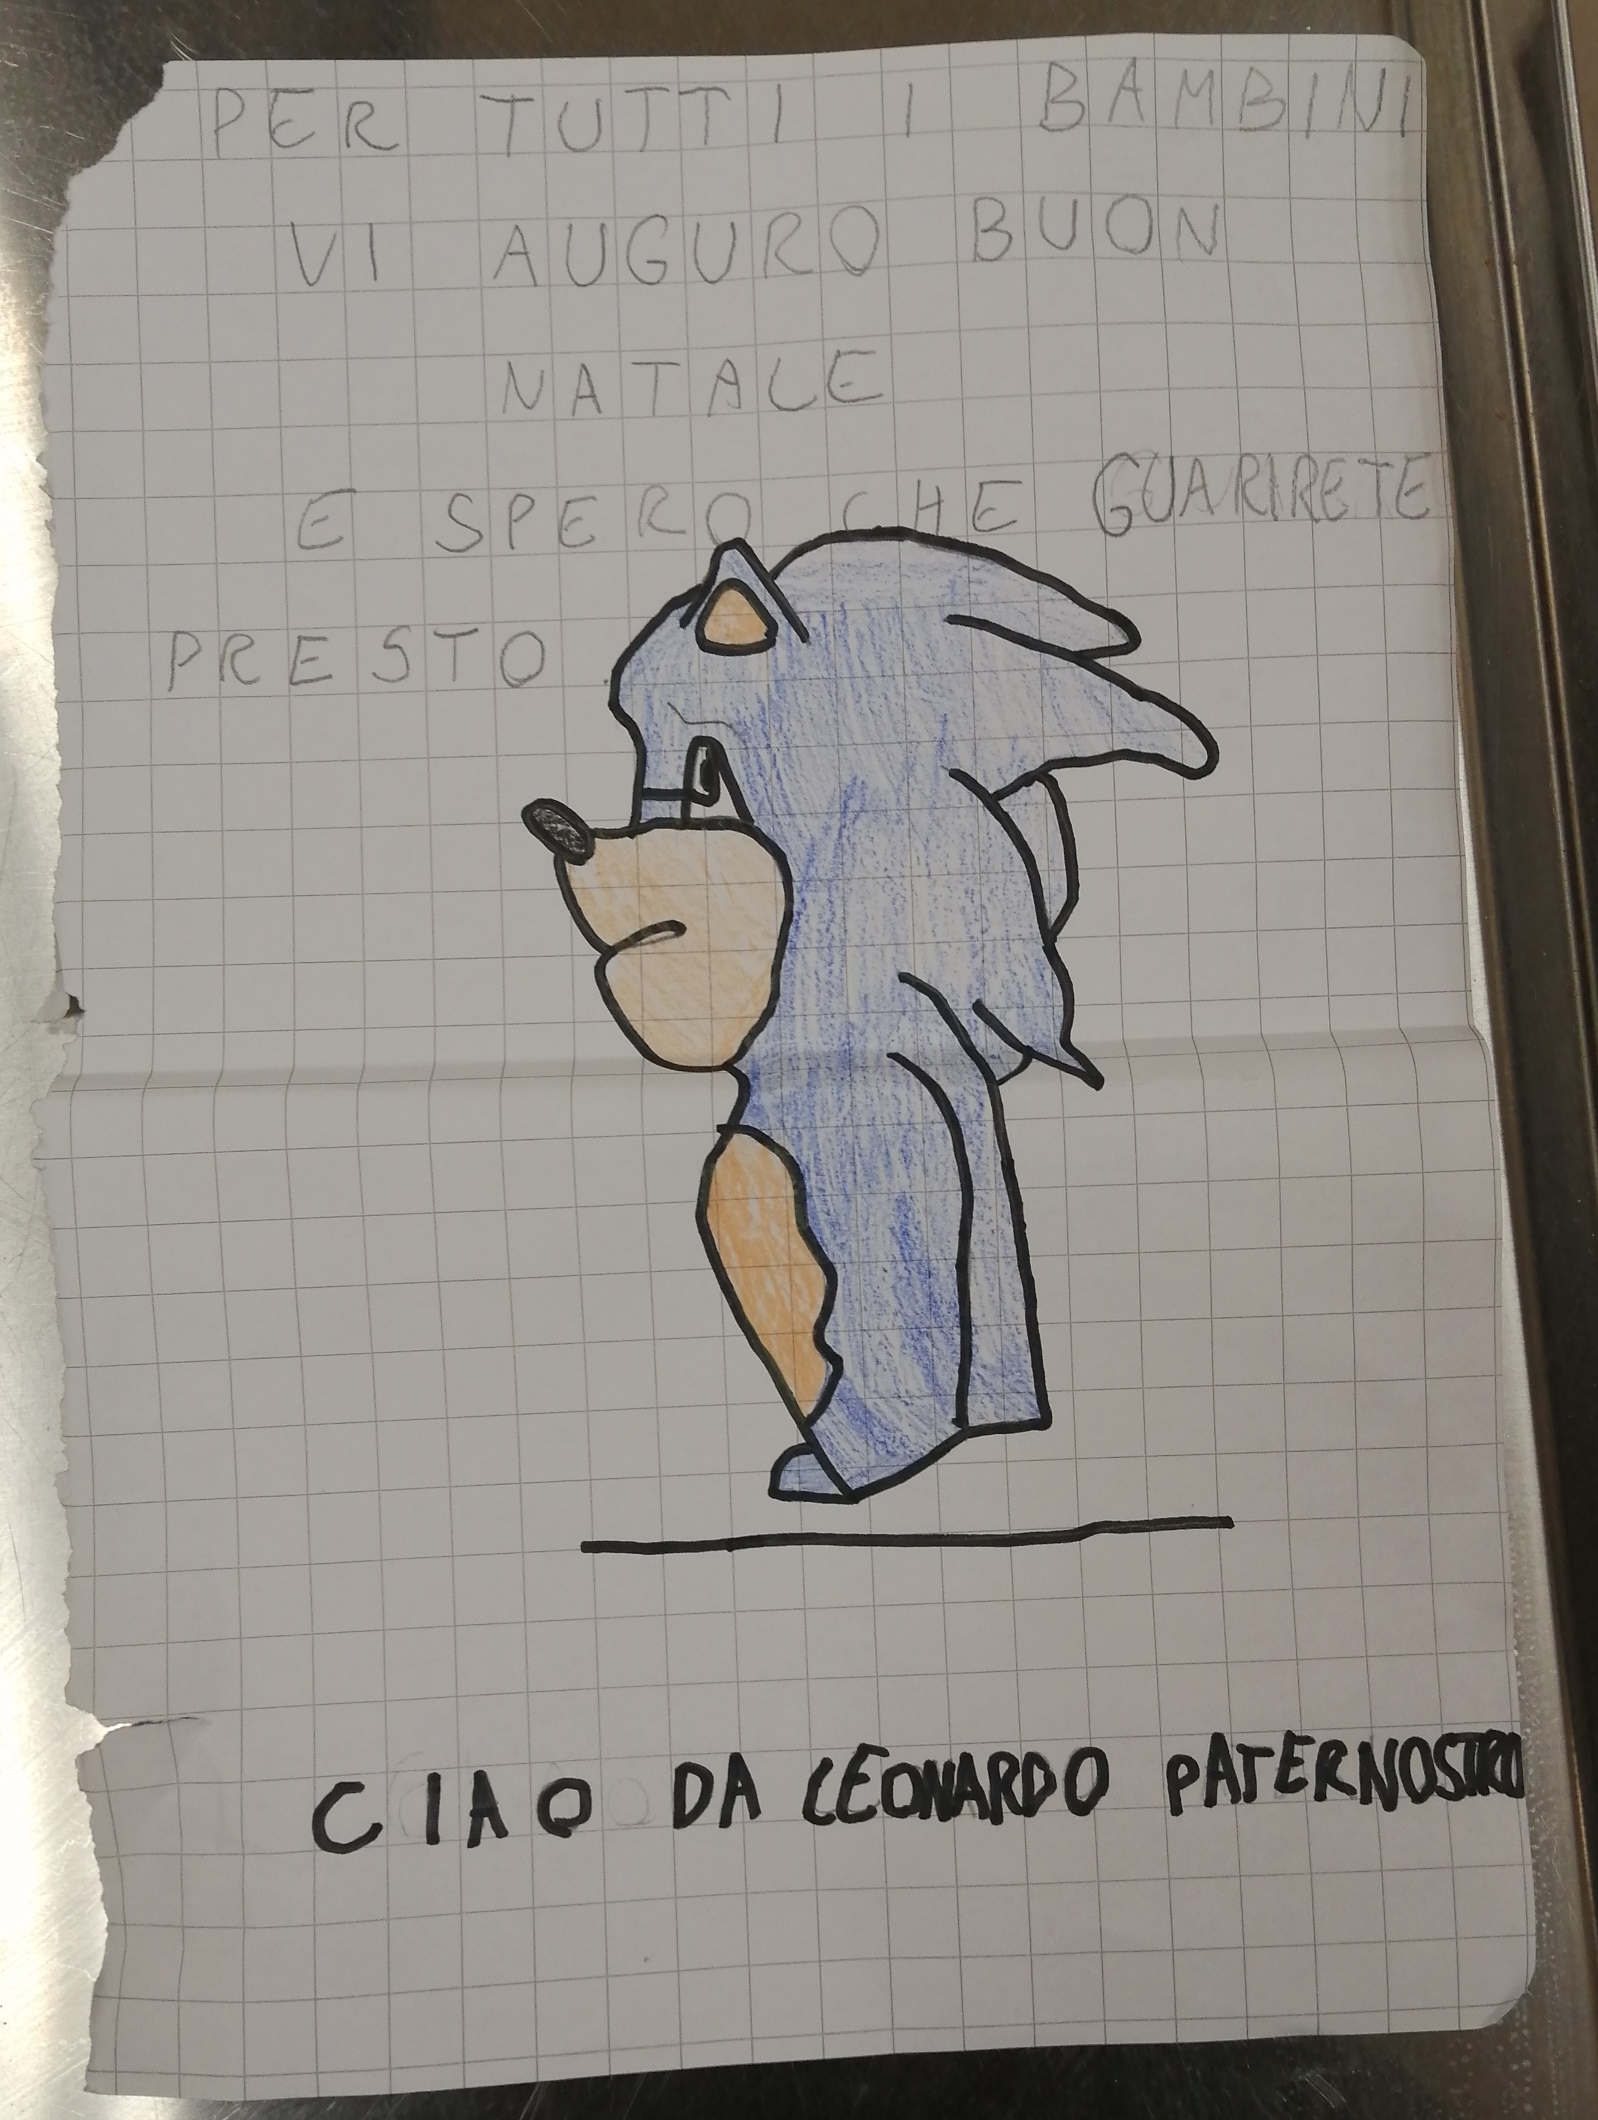 PER TUTTI I BAMBINI
VI AUGURO BUON
NATALE
E SPERO CHE GUARIRETE
PRESTO.
CIAO DA LEONARDO PATERNOSTRO